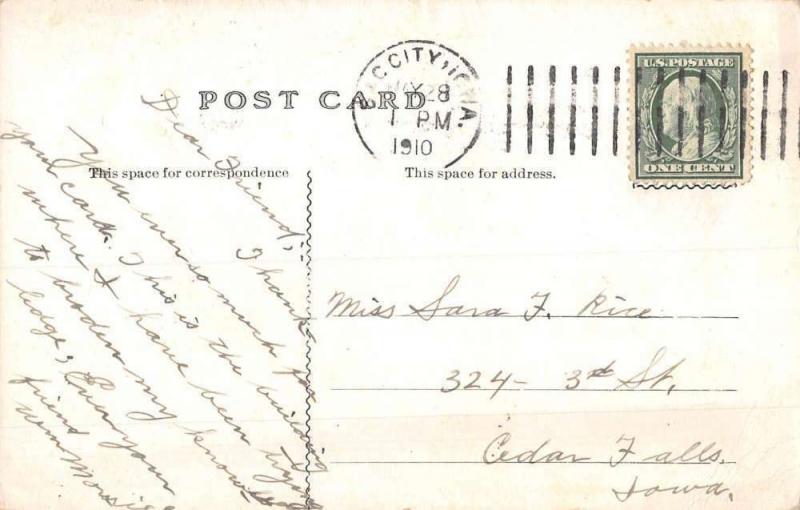 POST CARD
C CITY, IOWA.
MAY 28
1 PM
1910
U.S. POSTAGE
ONE CENT
This space for correspondence
This space for address.
Dear Friend,
Thank
You ever so much for
your card. This is the building
where I have been trying
to broden my knowl
ledge, Ever your
friend
Wm
Miss Sara F. Rice
324- 3rd St,
Cedar Falls,
Iowa,